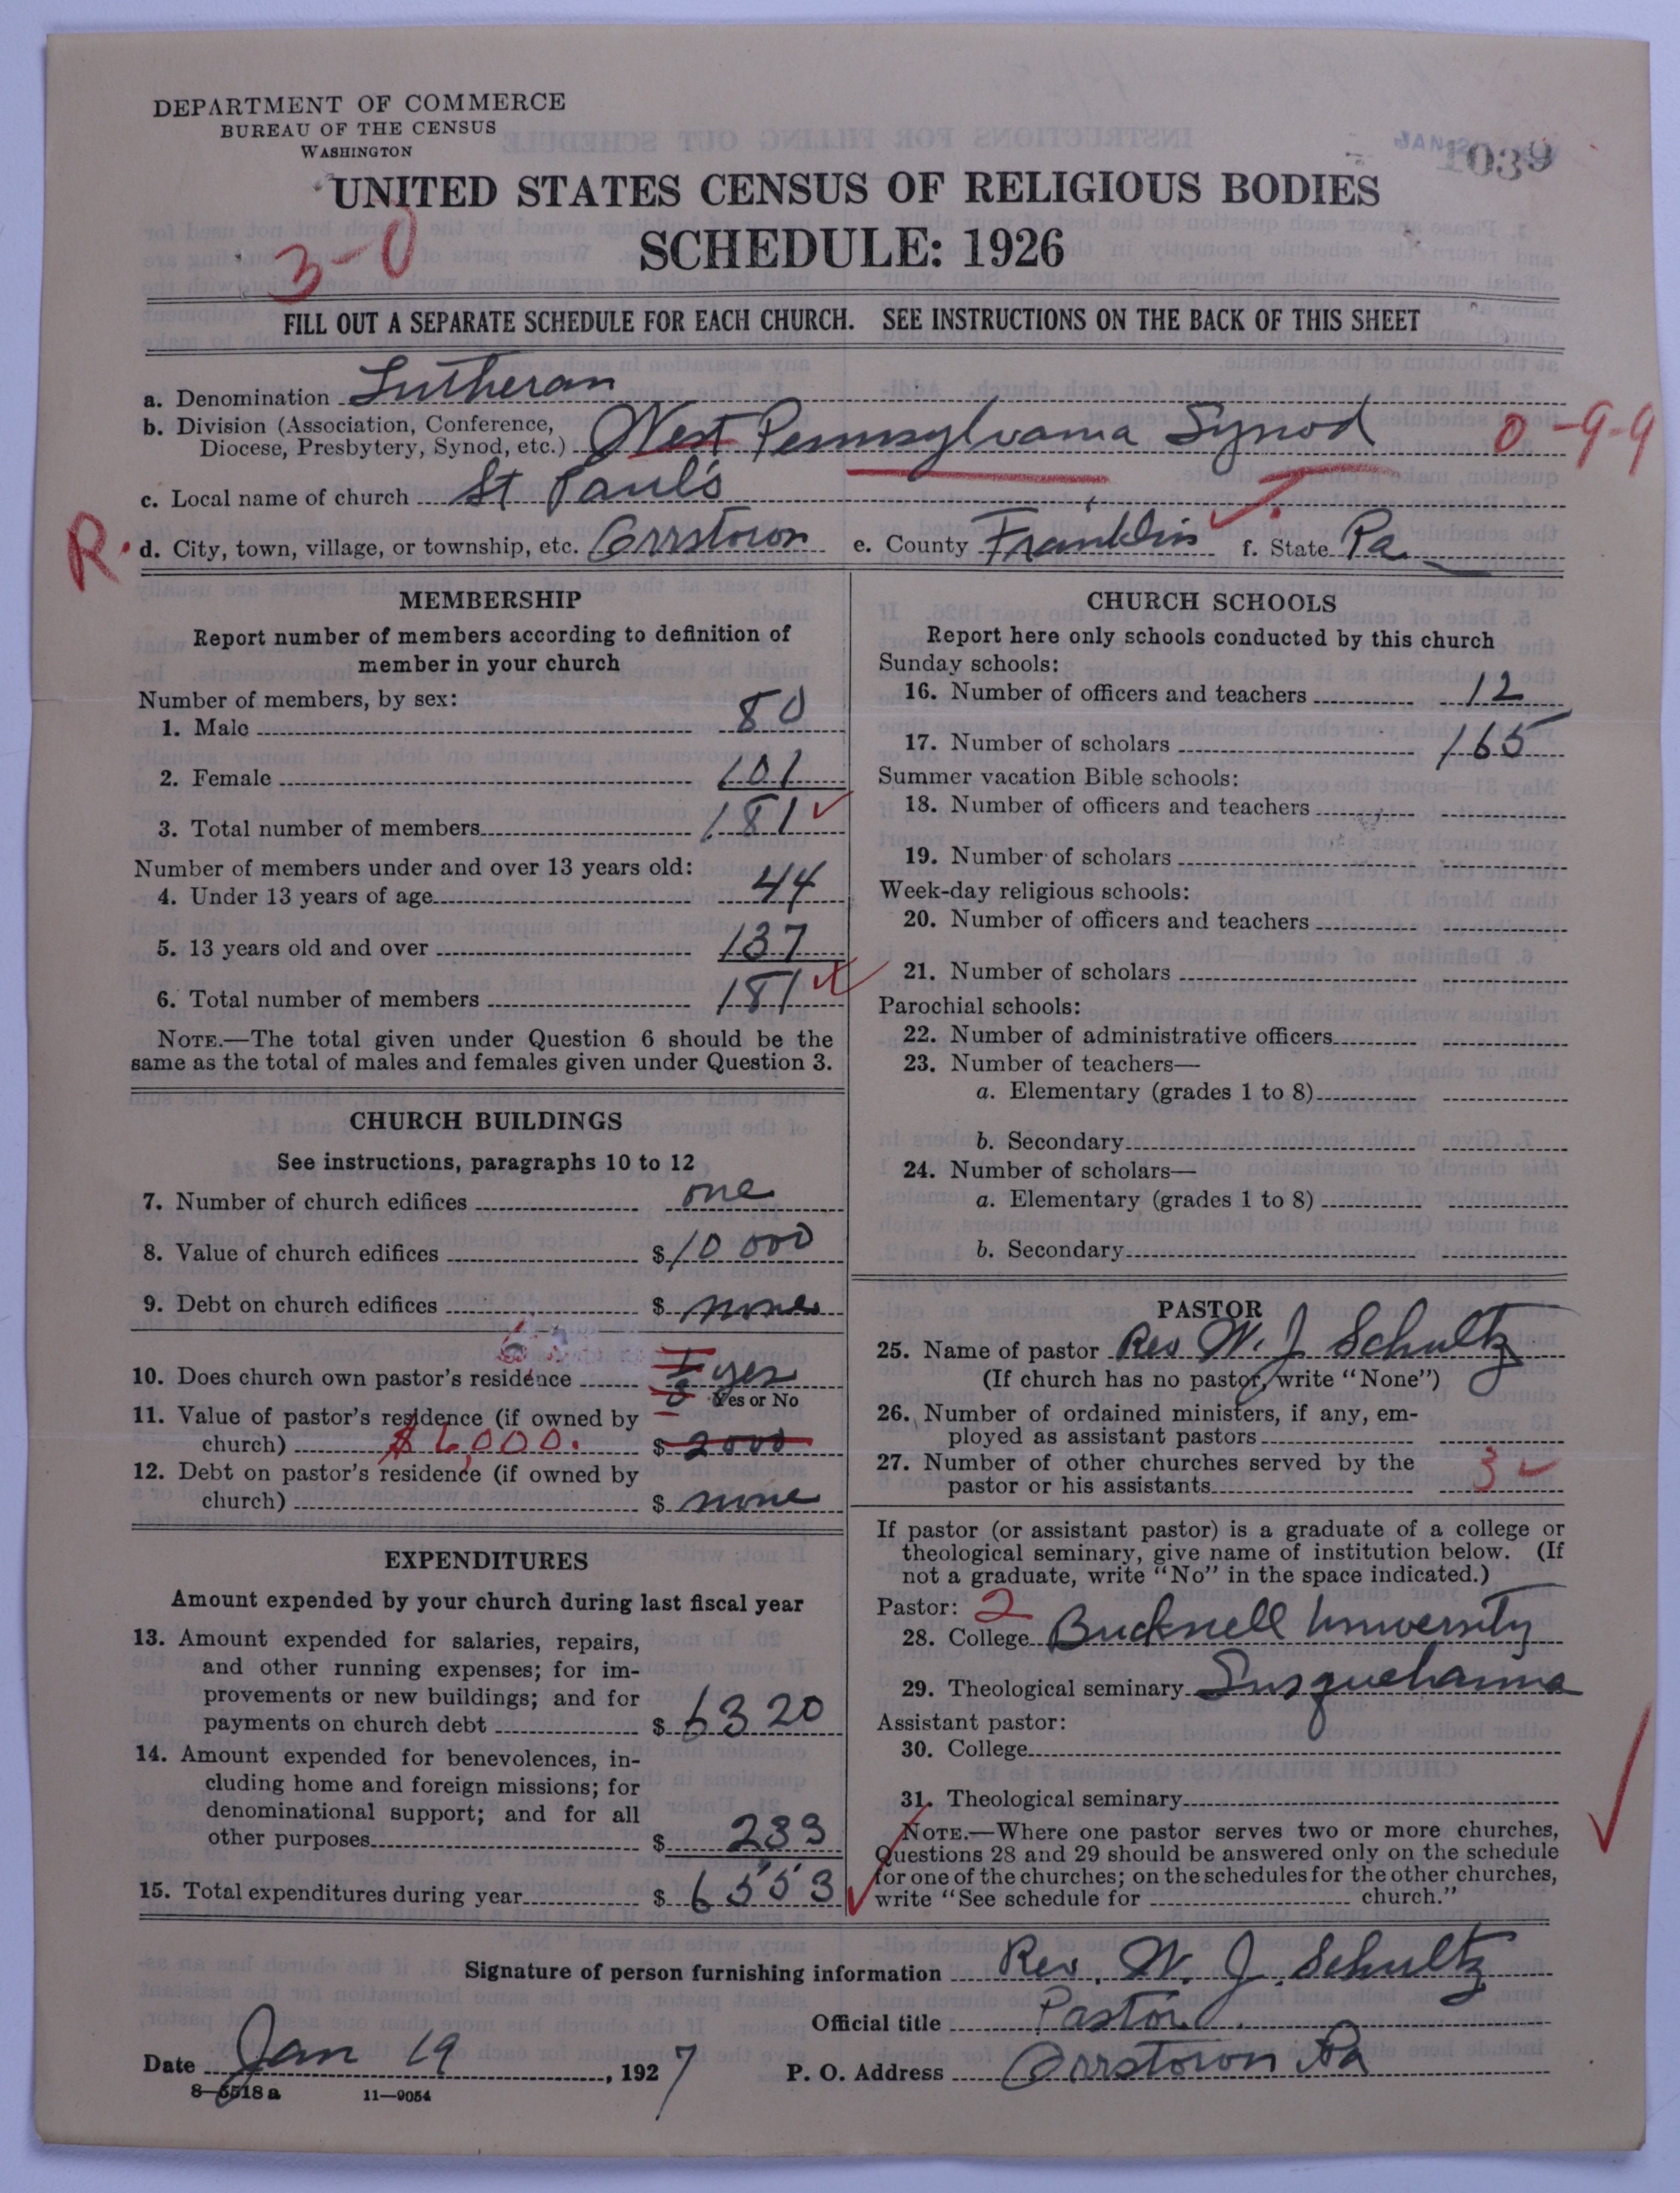 DEPARTMENT OF COMMERCE
BUREAU OF THE CENSUS
WASHINGTON
1039
UNITED STATES CENSUS OF RELIGIOUS BODIES
SCHEDULE: 1926
3-0
FILL OUT A SEPARATE SCHEDULE FOR EACH CHURCH. SEE INSTRUCTIONS ON THE BACK OF THIS SHEET
a. Denomination Lutheran
b. Division (Association, Conference,
Diocese, Presbytery, Synod, etc.) West Pennsylvania Synod 0-9-9
c. Local name of church St Paul's
R d. City, town, village, or township, etc. Orrstown e. County Franklin f. State Pa
MEMBERSHIP
Report number of members according to definition of
member in your church
Number of members, by sex:
1. Male 80
2. Female 101
3. Total number of members 181
Number of members under and over 13 years old:
4. Under 13 years of age 44
5. 13 years old and over 137
6. Total number of members 181
NOTE.—The total given under Question 6 should be the
same as the total of males and females given under Question 3.
CHURCH BUILDINGS
See instructions, paragraphs 10 to 12
7. Number of church edifices one
8. Value of church edifices $10 000
9. Debt on church edifices $ none
10. Does church own pastor's residence yes
Yes or No
11. Value of pastor's residence (if owned by
church) $6,000. $ 2000
12. Debt on pastor's residence (if owned by
church) $ none
EXPENDITURES
Amount expended by your church during last fiscal year
13. Amount expended for salaries, repairs,
and other running expenses; for im-
provements or new buildings; and for
payments on church debt $ 6320
14. Amount expended for benevolences, in-
cluding home and foreign missions; for
denominational support; and for all
other purposes $ 233
15. Total expenditures during year $ 6553
CHURCH SCHOOLS
Report here only schools conducted by this church
Sunday schools:
16. Number of officers and teachers 12
17. Number of scholars 165
Summer vacation Bible schools:
18. Number of officers and teachers
19. Number of scholars
Week-day religious schools:
20. Number of officers and teachers
21. Number of scholars
Parochial schools:
22. Number of administrative officers
23. Number of teachers—
a. Elementary (grades 1 to 8)
b. Secondary
24. Number of scholars—
a. Elementary (grades 1 to 8)
b. Secondary
PASTOR
25. Name of pastor Rev W. J Schultz
(If church has no pastor, write "None")
26. Number of ordained ministers, if any, em-
ployed as assistant pastors
27. Number of other churches served by the
pastor or his assistants 3
If pastor (or assistant pastor) is a graduate of a college or
theological seminary, give name of institution below. (If
not a graduate, write "No" in the space indicated.)
Pastor: 2
28. College Bucknell University
29. Theological seminary Susquehanna
Assistant pastor:
30. College
31. Theological seminary
NOTE.—Where one pastor serves two or more churches,
Questions 28 and 29 should be answered only on the schedule
for one of the churches; on the schedules for the other churches,
write "See schedule for church."
Signature of person furnishing information Rev. W. J. Schultz
Official title Pastor
Date Jan 19, 1927 P. O. Address Orrstown Pa
8-5518 a 11-9054